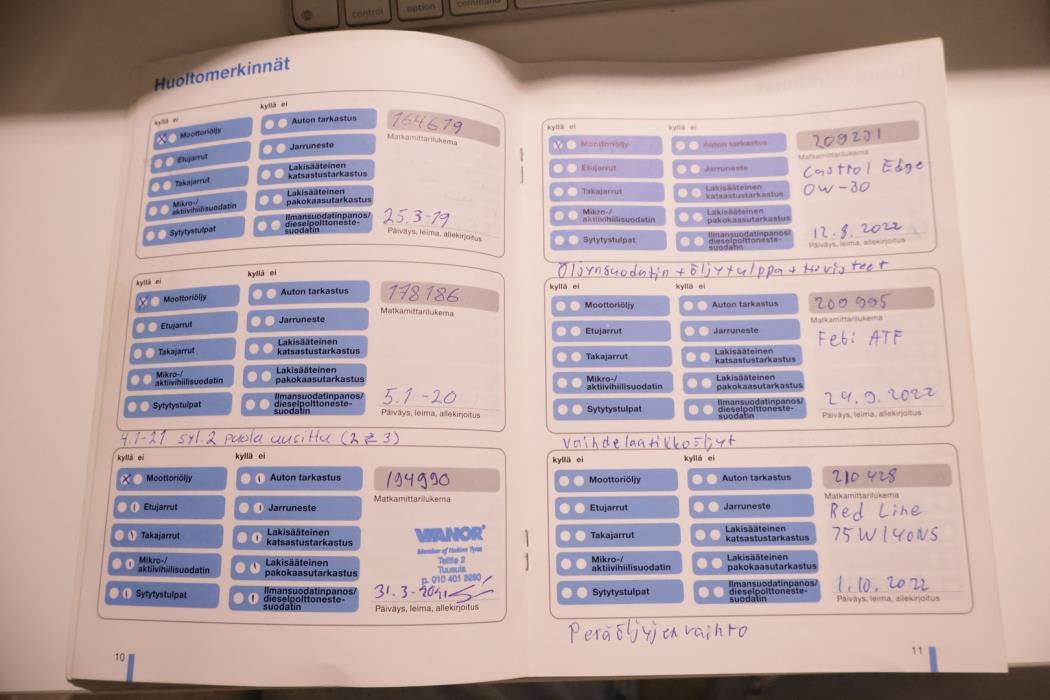 control
option
command
Huoltomerkinnät
kyllä ei
Moottoriöljy
Etujarrut
Takajarrut
Mikro-/
aktiivihiilisuodatin
Sytytystulpat
kyllä ei
Auton tarkastus
Jarruneste
Lakisääteinen
katsastustarkastus
Lakisääteinen
pakokaasutarkastus
Ilmansuodatinpanos/
dieselpolttoneste-
suodatin
164619
Matkamittarilukema
25.3-19
Päiväys, leima, allekirjoitus
kyllä ei
Moottoriöljy
Etujarrut
Takajarrut
Mikro-/
aktiivihiilisuodatin
Sytytystulpat
kyllä ei
Auton tarkastus
Jarruneste
Lakisääteinen
katsastustarkastus
Lakisääteinen
pakokaasutarkastus
Ilmansuodatinpanos/
dieselpolttoneste-
suodatin
178186
Matkamittarilukema
5.1-20
Päiväys, leima, allekirjoitus
4.1-21 syl.2 puola uusittu (2⇄3)
kyllä ei
Moottoriöljy
Etujarrut
Takajarrut
Mikro-/
aktiivihiilisuodatin
Sytytystulpat
kyllä ei
Auton tarkastus
Jarruneste
Lakisääteinen
katsastustarkastus
Lakisääteinen
pakokaasutarkastus
Ilmansuodatinpanos/
dieselpolttoneste-
suodatin
194990
Matkamittarilukema
VIANOR
Member of Nokian Tyres
Tuusula
p. 010 401 
31.3-2021
Päiväys, leima, allekirjoitus
10
kyllä ei
Moottoriöljy
Etujarrut
Takajarrut
Mikro-/
aktiivihiilisuodatin
Sytytystulpat
kyllä ei
Auton tarkastus
Jarruneste
Lakisääteinen
katsastustarkastus
Lakisääteinen
pakokaasutarkastus
Ilmansuodatinpanos/
dieselpolttoneste-
suodatin
209201
Matkamittarilukema
Castrol Edge
0W-30
12.8.2022
Päiväys, leima, allekirjoitus
Öljynsuodatin + öljytulppa + tiivisteet
kyllä ei
Moottoriöljy
Etujarrut
Takajarrut
Mikro-/
aktiivihiilisuodatin
Sytytystulpat
kyllä ei
Auton tarkastus
Jarruneste
Lakisääteinen
katsastustarkastus
Lakisääteinen
pakokaasutarkastus
Ilmansuodatinpanos/
dieselpolttoneste-
suodatin
209995
Matkamittarilukema
Febi ATF
24.9.2022
Päiväys, leima, allekirjoitus
Vaihdelaatikkoöljyt
kyllä ei
Moottoriöljy
Etujarrut
Takajarrut
Mikro-/
aktiivihiilisuodatin
Sytytystulpat
kyllä ei
Auton tarkastus
Jarruneste
Lakisääteinen
katsastustarkastus
Lakisääteinen
pakokaasutarkastus
Ilmansuodatinpanos/
dieselpolttoneste-
suodatin
210428
Matkamittarilukema
Red Line
75W140NS
1.10.2022
Päiväys, leima, allekirjoitus
Peräöljyjen vaihto
11